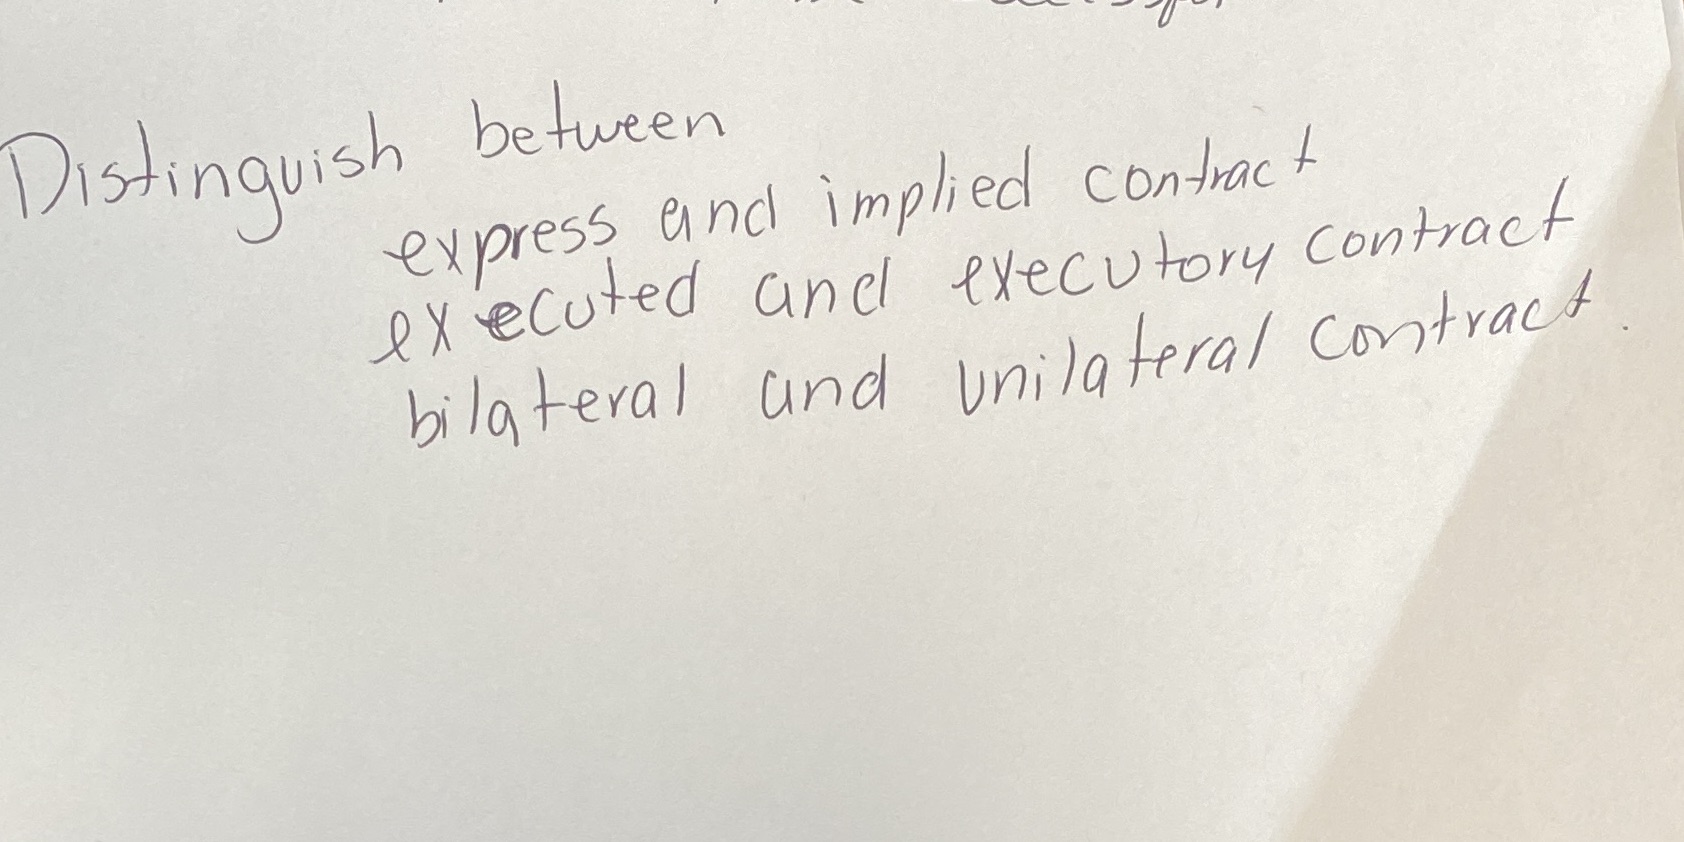 Distinguish between
express and implied contract
executed and executory contract
bilateral and unilateral contract.